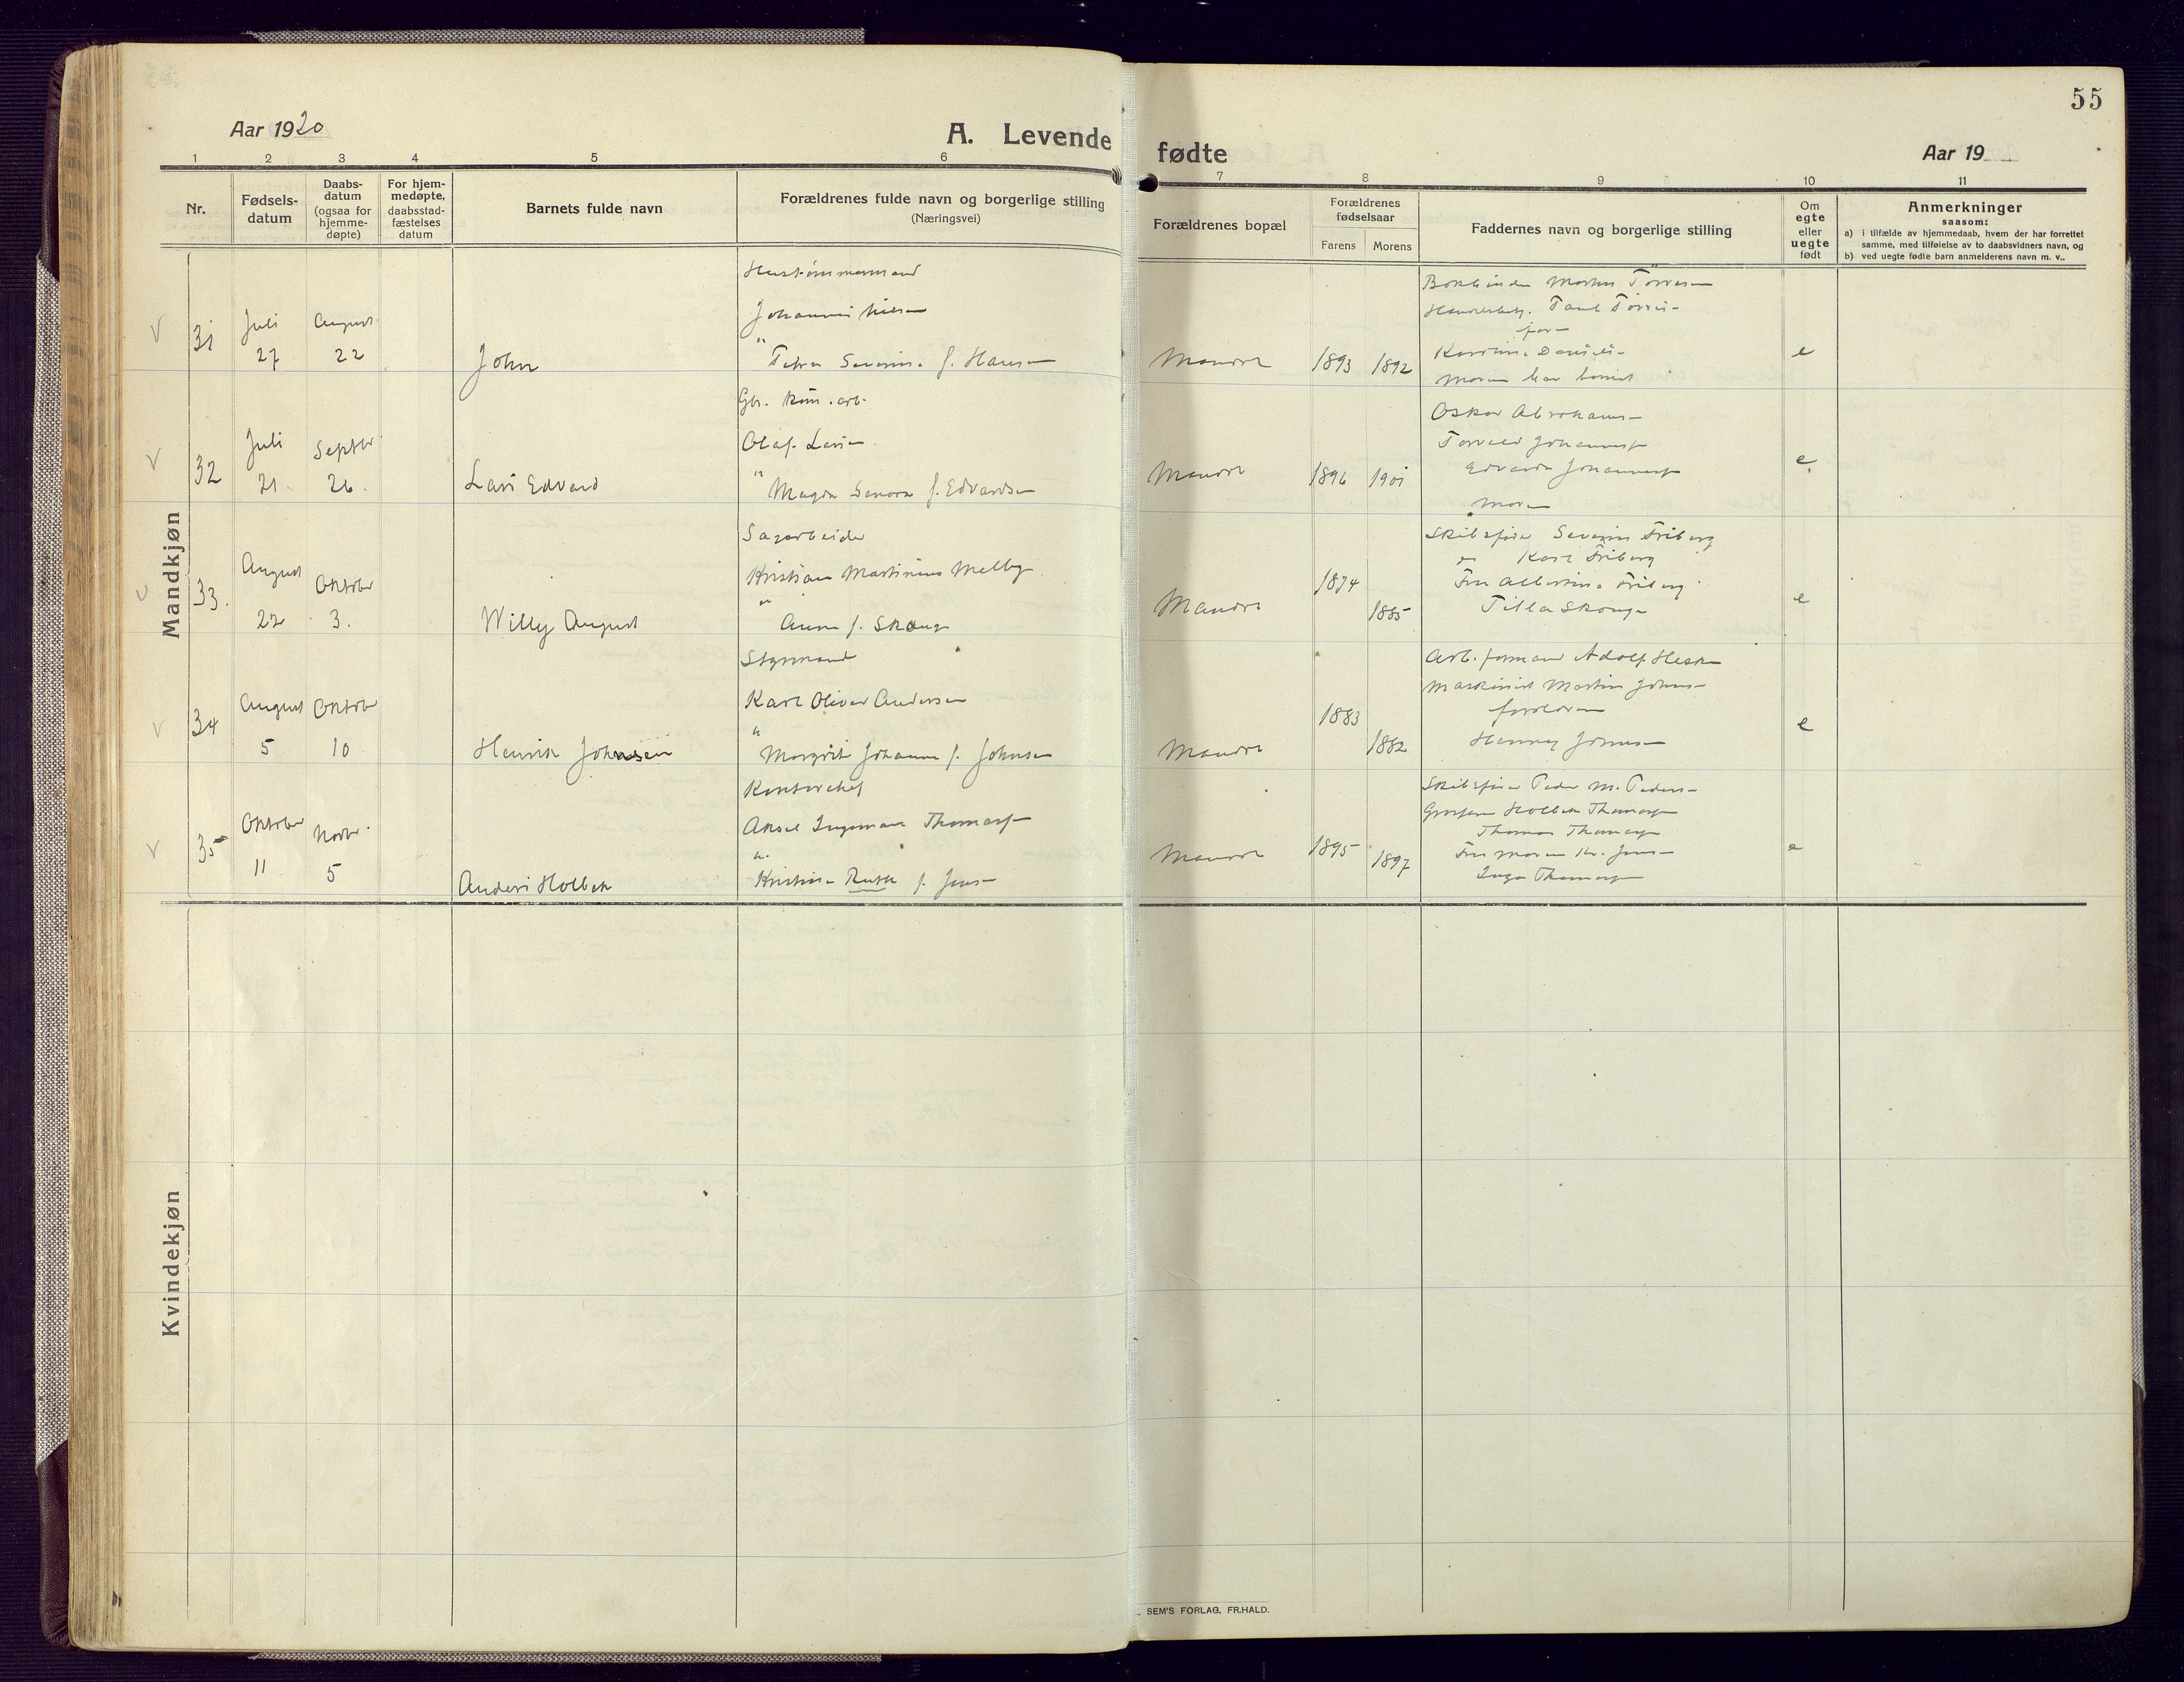 55
Aar 1920
A. Levende fødte
Aar 19
1 2 3 4 5 6 7 8 9 10 11
Nr.
Fødsels-
datum
Daabs-
datum
(ogsaa for
hjemme-
døpte)
For hjem-
medøpte,
daabsstad-
fæstelses
datum
Barnets fulde navn
Forældrenes fulde navn og borgerlige stilling
(Næringsvei)
Forældrenes bopæl
Forældrenes
fødselsaar
Farens Morens
Faddernes navn og borgerlige stilling
Om
egte
eller
uegte
født
Anmerkninger
saasom:
a) i tilfælde av hjemmedaab, hvem der har forrettet
samme, med tilføielse av to daabsvidners navn, og
b) ved uegte fødte barn anmelderens navn m. v..
Mandkjøn
31
Juli
27
August
22
John
Hustømmermand
Johannes Nilsen
"
Petra Severine f. Hansen
1893 1892
Martin
far
e
32
Juli
21
Septbr.
26.
Lars Edvard
Olaf Larsen
"
Magda f. Edvardsen
1896 1901
Oskar Abrahams
Johanness
Johanness
moren
e
33.
August
22
Oktober
3.
Willy August
Sagarbeider
Kristian Martinius Melby
"
Anna f. Skauge
1874
1885
Skibsfører Severin Friberg
Karl Friberg
Fru Albertine Friberg
Tilla Skauge
e
34
August
5
Oktober
10
Henrik Johnsen
Styrmand
Karl Oliver Andersen
"
Margrit Johanne f. Johnsen
1883
1882
Arb. formand Adolf
Maskinist Martin Johns
forældrene
e
35
Oktober
11
Novbr.
5
Anders Holbek
Kontorchef
Aksel Ingemann Thomass
"
Kristine Ruth f. Jens
1895
1897
Skibsfører Peder M. Peders
Holbek Thomass
Thomas Thomass
Fru
Inga Thomass
e
Kvindekjøn
SEM'S FORLAG, FR.HALD.